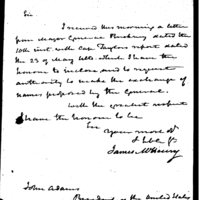 Sir
I received this morning a letter
from Major General Pinckney dated
the 10th inst. with Capt Taylors report dated
the 23 of May ulto. which I have the
honour to inclose and to request
authority to make the exchange of
names proposed by the General.
With the greatest respect
I have the honour to be
Sir
Your most Obt
James McHenry
John Adams
President of the United States